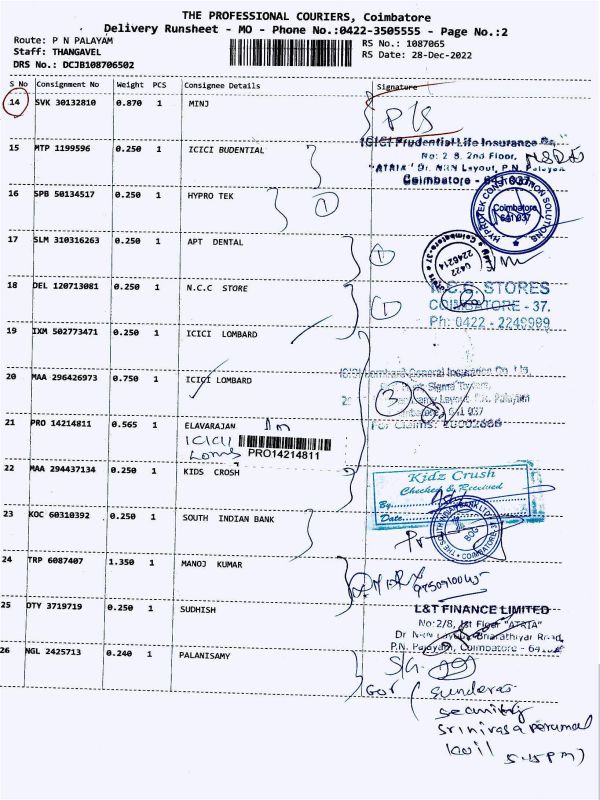 THE PROFESSIONAL COURIERS, Coimbatore
Delivery Runsheet - MO - Phone No.:0422-3505555 - Page No.:2
Route: P N PALAYAM
RS No.: 1087065
Staff: THANGAVEL
RS Date: 28-Dec-2022
DRS No.: DCJB108706502
S No Consignment No Weight PCS Consignee Details Signature
14 SVK 30132810 0.870 1 MINJ
P/S
15 MTP 1199596 0.250 1 ICICI BUDENTIAL
ICICI Prudential Life Insurance
No: 2 8, 2nd Floor,
"ATRIA" Dr. NRN Layout, P.N. Palayam
Coimbatore - 641 037
16 SPB 50134517 0.250 1 HYPRO TEK
1
HYPROTEK CONSTRUCTION SOLUTIONS
Coimbatore
641 037
17 SLM 310316263 0.250 1 APT DENTAL
1
Coimbatore-37
0422
2246214
18 DEL 120713081 0.250 1 N.C.C STORE
1
N.C.C. STORES
COIMBATORE - 37.
Ph: 0422 - 2246909
19 IXM 502773471 0.250 1 ICICI LOMBARD
20 MAA 296426973 0.750 1 ICICI LOMBARD
3
Lombard General Insurance Co. Ltd,
Sigma Towers,
Layout, P.N. Palayam
Coimbatore - 641 037
For Claims:
21 PRO 14214811 0.565 1 ELAVARAJAN
ICICI
PRO14214811
22 MAA 294437134 0.250 1 KIDS CROSH
Kidz Crush
Checked & Received
By
Date
23 KOC 60310392 0.250 1 SOUTH INDIAN BANK
THE SOUTH INDIAN BANK LTD
COIMBATORE
24 TRP 6087407 1.350 1 MANOJ KUMAR
25 OTY 3719719 0.250 1 SUDHISH
L&T FINANCE LIMITED
No:2/8, 1st Floor "ATRIA"
Dr NRN Layout, Bharathiyar Road,
P.N. Palayam, Coimbatore - 641
26 NGL 2425713 0.240 1 PALANISAMY
Sunderas
security
srinivasa perumal
koil
5.45PM)